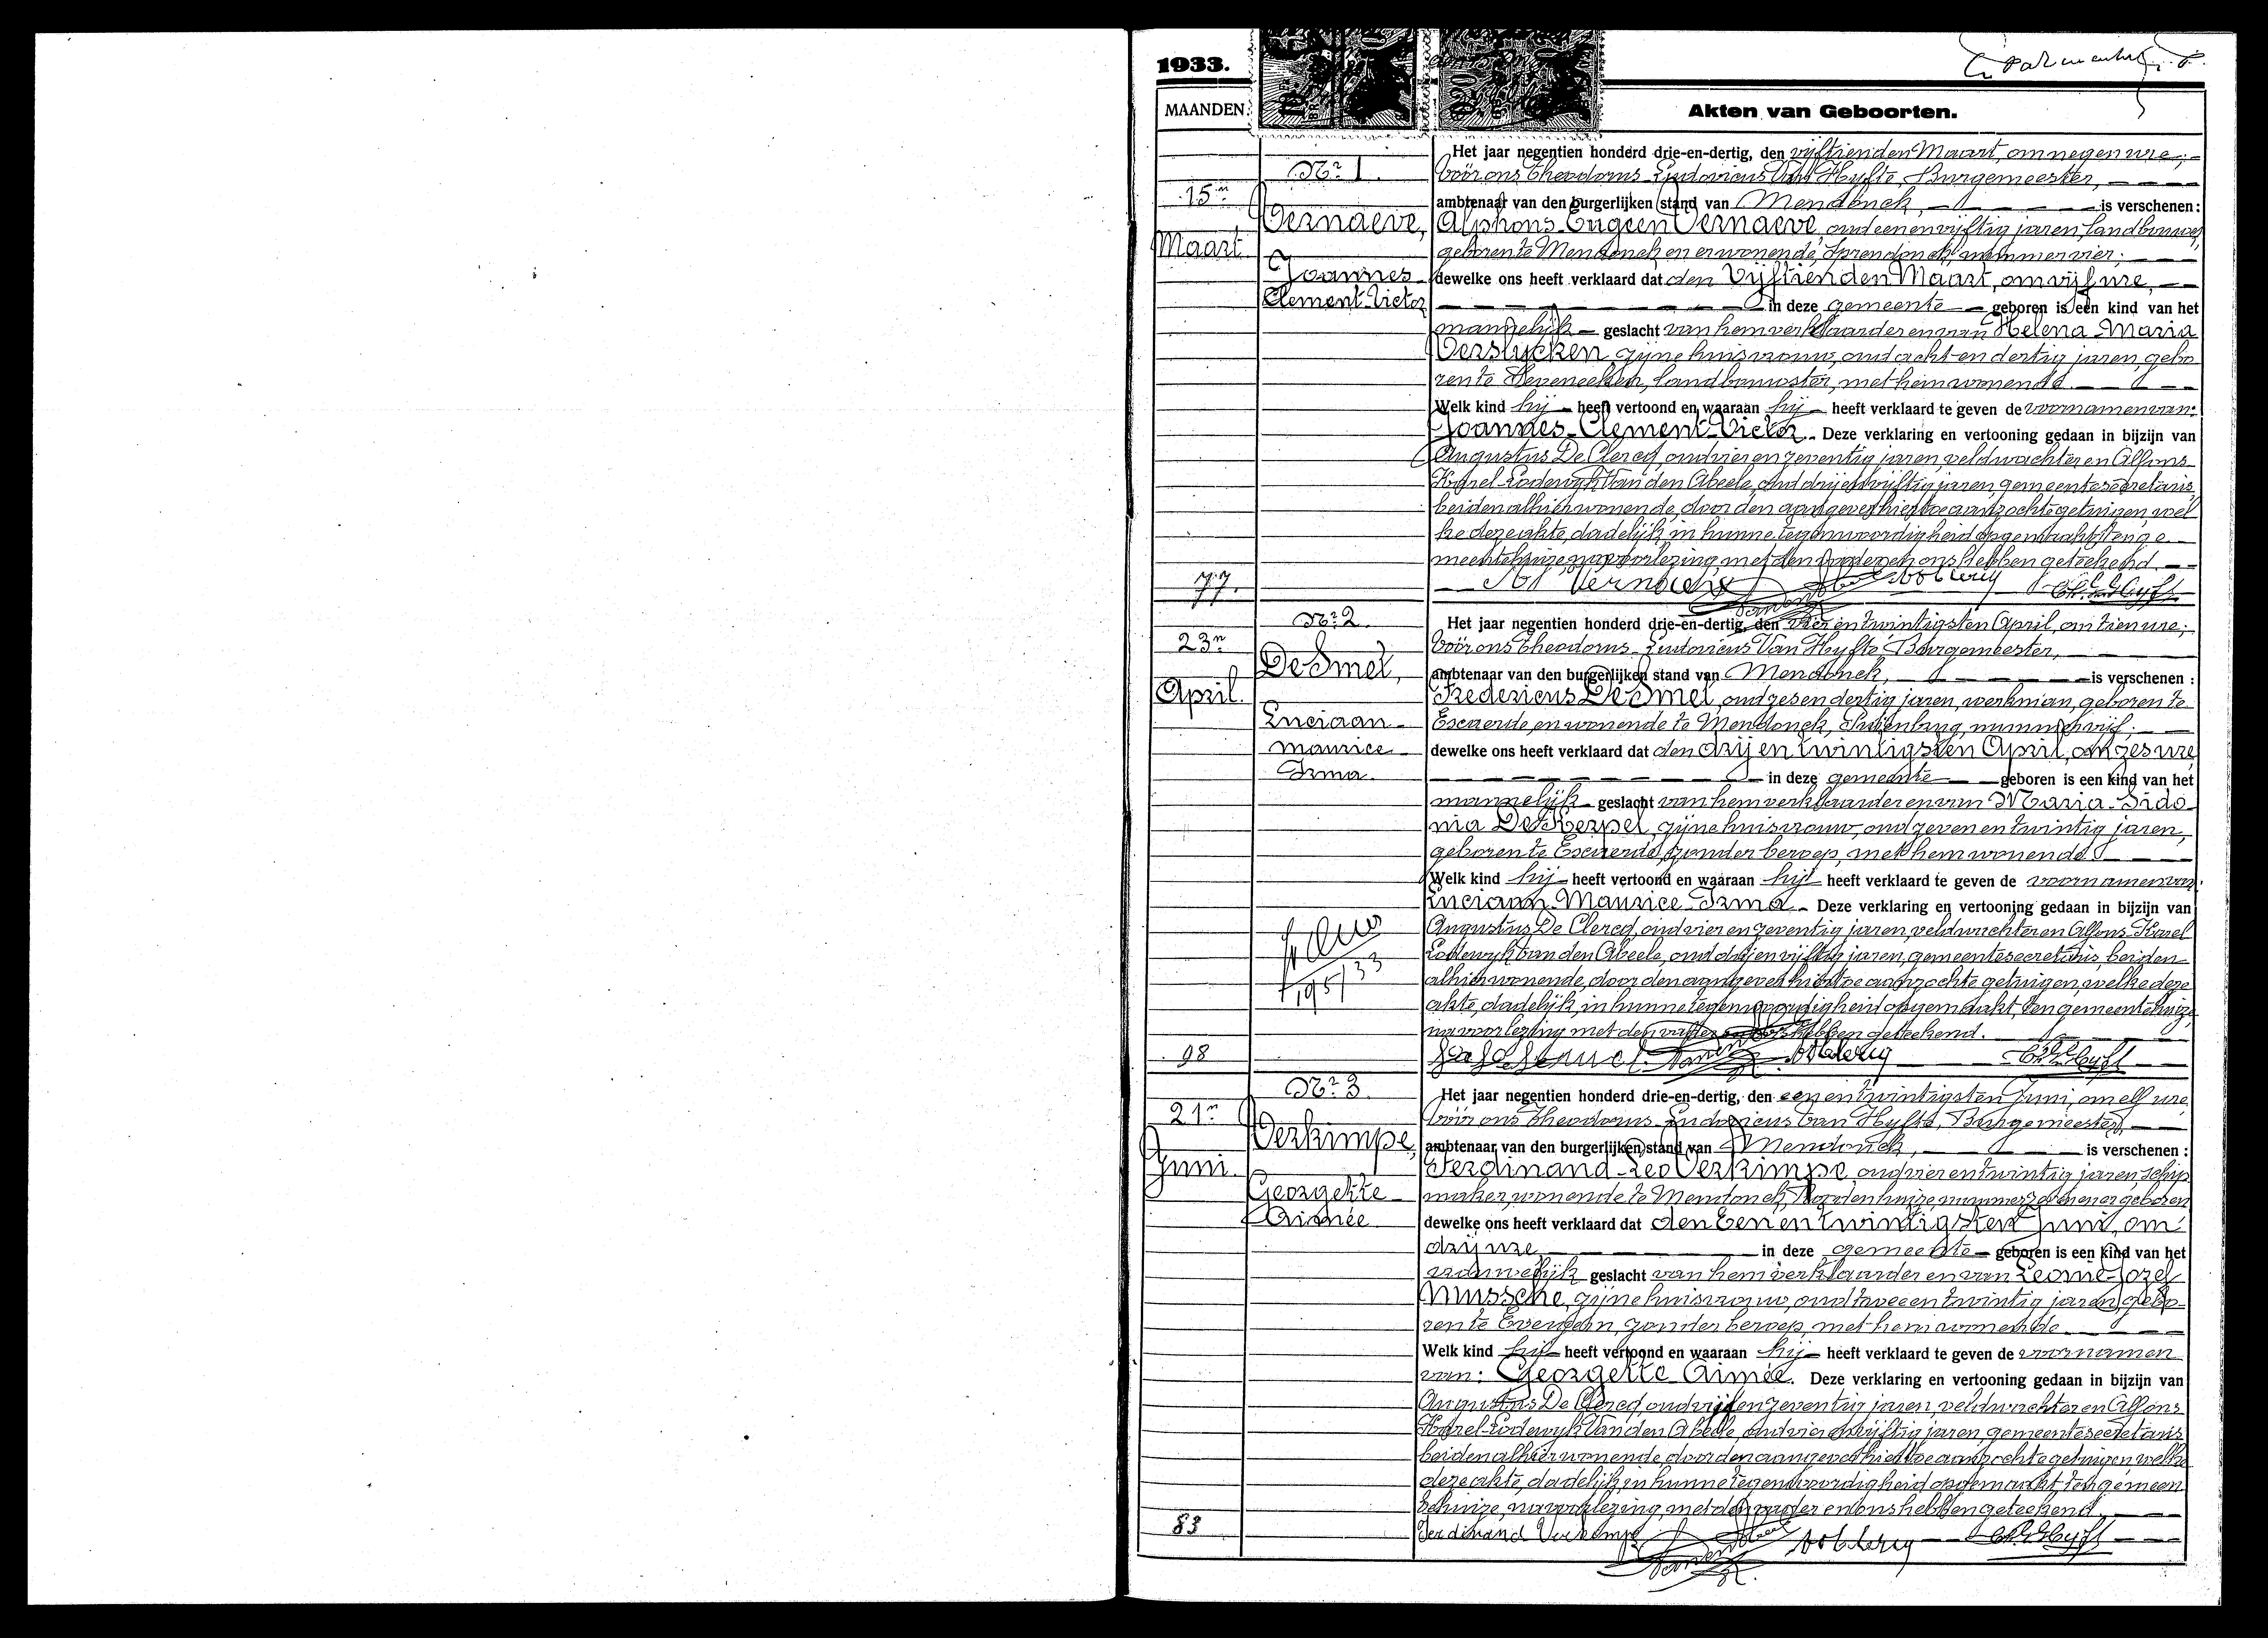 1933.
MAANDEN.
Akten van Geboorten.
Nr. 1.
15n
Maart.
Vernaeve,
Joannes-
Clement-Victor
77.
Het jaar negentien honderd drie-en-dertig, den vijftienden Maart, om negen ure;
vóór ons Theodorus-Ludovicus Van Hyfte, Burgemeester,
ambtenaar van den burgerlijken stand van Mendonck, is verschenen:
Alphons-Eugeen Vernaeve, oud een en vijftig jaren, landbouwer,
geboren te Mendonck en er wonende, nummer vier;
dewelke ons heeft verklaard dat den Vijftienden Maart, om vijf ure,
in deze gemeente geboren is een kind van het
mannelijk geslacht van hem verklaarder en van Helena-Maria
Verslycken, zijne huisvrouw, oud acht en dertig jaren, gebo
ren te Zeveneeken, landbouwster, met hem wonende.
Welk kind hij heeft vertoond en waaraan hij heeft verklaard te geven de voornamen van:
Joannes-Clement-Victor. Deze verklaring en vertooning gedaan in bijzijn van
Augustus De Clercq, oud vier en zeventig jaren, veldwachter en Alfons-
Karel-Lodewyk Van den Abeele, oud drij en vijftig jaren, gemeentesecretaris,
beiden alhier wonende, door den aangever hiertoe aanzochte getuigen, wel
ke deze akte, dadelijk, in hunne tegenwoordigheid opgemaakt, ten ge
meentehuize, na voorlezing, met den vader en ons hebben geteekend.
Vernaeve
Nr. 2.
23n
April.
De Smet,
Luciaan-
Maurice-
Irma.
98
Het jaar negentien honderd drie-en-dertig, den vier en twintigsten April, om tien ure;
vóór ons Theodorus-Ludovicus Van Hyfte, Burgemeester,
ambtenaar van den burgerlijken stand van Mendonck, is verschenen:
Fredericus De Smet, oud zes en dertig jaren, werkman, geboren te
Exaerde, en wonende te Mendonck, nummer vijf;
dewelke ons heeft verklaard dat den drij en twintigsten April, om zes ure,
in deze gemeente geboren is een kind van het
mannelijk geslacht van hem verklaarder en van Maria-Sido
nia De Kerpel, zijne huisvrouw, oud zeven en twintig jaren,
geboren te Exaerde, zonder beroep, met hem wonende.
Welk kind hij heeft vertoond en waaraan hij heeft verklaard te geven de voornamen van:
Luciaan-Maurice-Irma. Deze verklaring en vertooning gedaan in bijzijn van
Augustus De Clercq, oud vier en zeventig jaren, veldwachter en Alfons-Karel
Lodewyk Van den Abeele, oud drij en vijftig jaren, gemeentesecretaris, beiden
alhier wonende, door den aangever hiertoe aanzochte getuigen, welke deze
akte, dadelijk, in hunne tegenwoordigheid opgemaakt, ten gemeentehuize,
na voorlezing met den vader en ons hebben geteekend.
Nr. 3.
21n
Juni.
Verkimpe,
Georgette-
Aimée
83
Het jaar negentien honderd drie-en-dertig, den een en twintigsten Juni, om elf ure,
vóór ons Theodorus-Ludovicus Van Hyfte, Burgemeester,
ambtenaar van den burgerlijken stand van Mendonck, is verschenen:
Ferdinand-Leo Verkimpe, oud vier en twintig jaren, schip
maker, wonende te Mendonck, nummer en er geboren
dewelke ons heeft verklaard dat den Een en twintigsten Juni, om
drij ure in deze gemeente geboren is een kind van het
vrouwelijk geslacht van hem verklaarder en van Leonie-Jozef
Mussche, zijne huisvrouw, oud twee en twintig jaren, gebo-
ren te Evergem, zonder beroep, met hem wonende.
Welk kind hij heeft vertoond en waaraan hij heeft verklaard te geven de voornamen
van: Georgette-Aimée. Deze verklaring en vertooning gedaan in bijzijn van
Augustus De Clercq, oud vijf en zeventig jaren, veldwachter en Alfons
Karel-Lodewyk Van den Abeele, oud vier en vijftig jaren, gemeentesecretaris
beiden alhier wonende, door den aangever hiertoe aanzochte getuigen, welke
deze akte, dadelijk, in hunne tegenwoordigheid opgemaakt, ten gemeen
tehuize, na voorlezing, met den vader en ons hebben geteekend.
Ferdinand Verkimpe